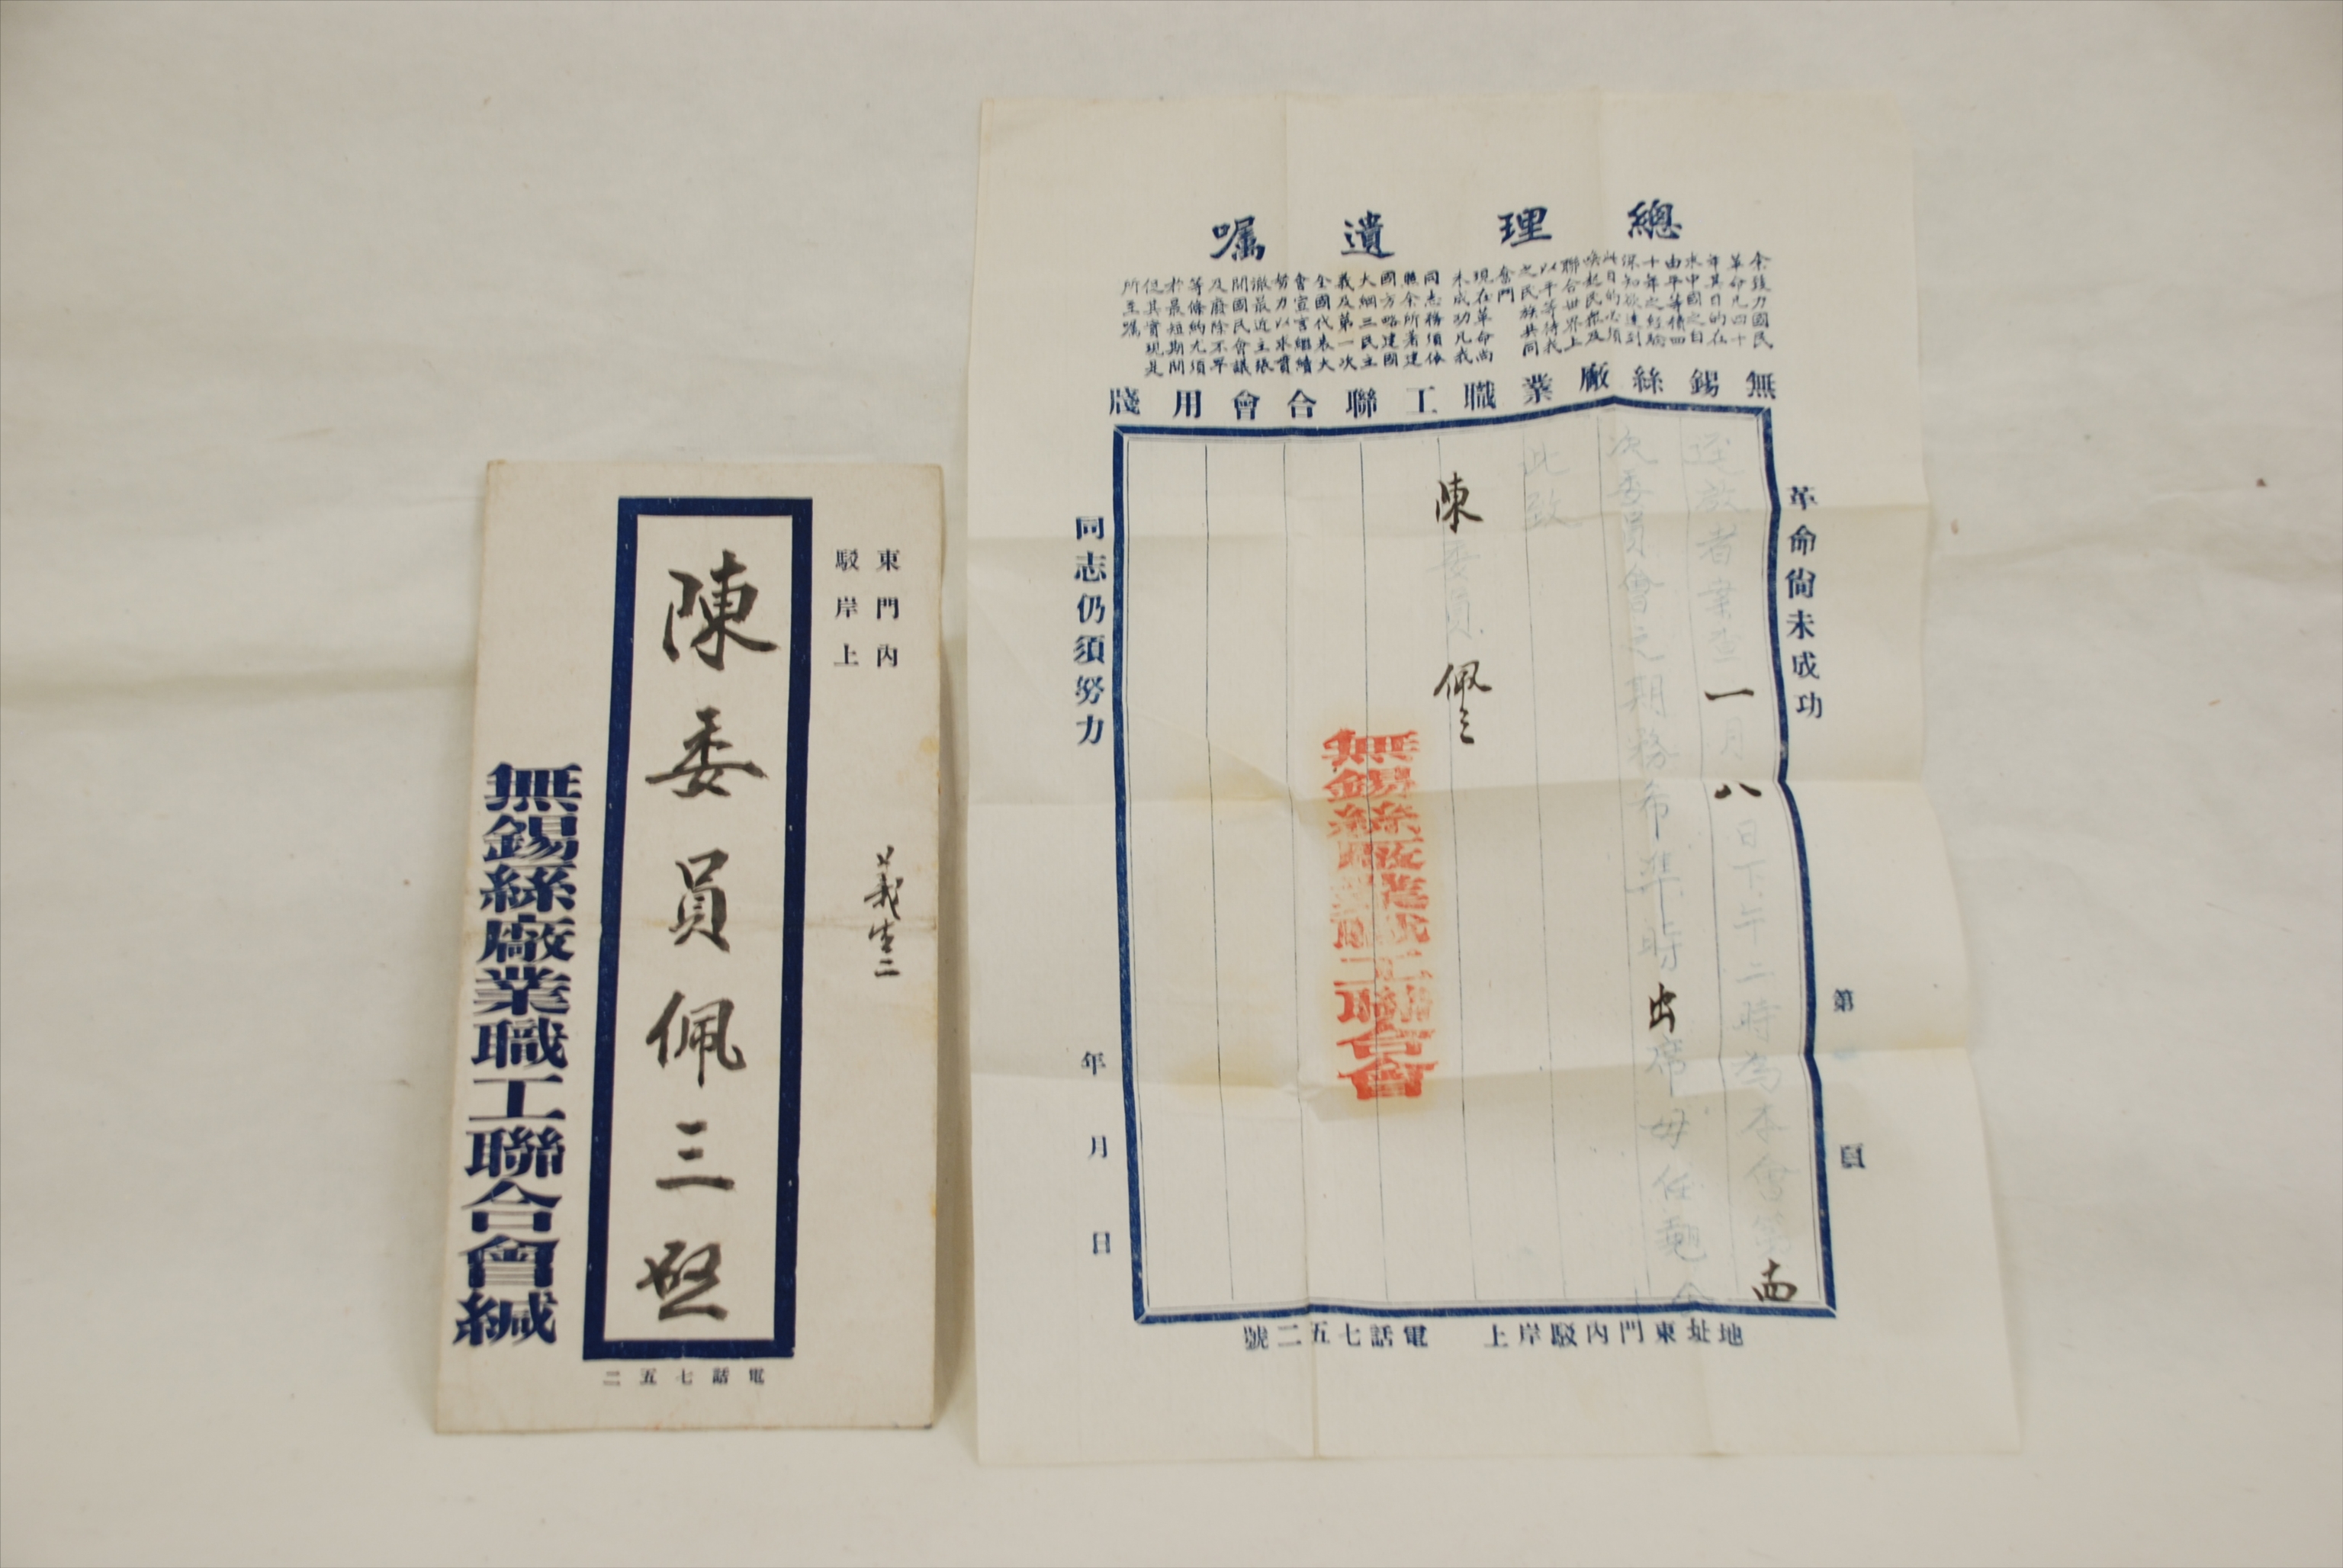 東門內
駁岸上
義生二
陳委員佩三啓
無錫絲廠業職工聯合會緘
電話七五二
總理遺囑
余致力國民
革命凡四十
年其目的在
求中國之自
由平等積四
十年之經驗
深知欲達到
此目的必須
喚起民衆及
聯合世界上
以平等待我
之民族共同
奮鬥
現在革命尚
未成功凡我
同志務須依
照余所著建
國方略建國
大綱三民主
義及第一次
全國代表大
會宣言繼續
努力以求貫
澈最近主張
開國民會議
及廢除不平
等條約尤須
於最短期間
促其實現是
所至囑
無錫絲廠業職工聯合會用牋
革命尙未成功
第 頁
逕啟者案查一月八日下午二時為本會第
次委員會之期務希準時出席毋任
此致
陳委員佩三
無錫絲廠業職工聯合會
同志仍須努力
年月日
地址東門內駁岸上 電話七五二號